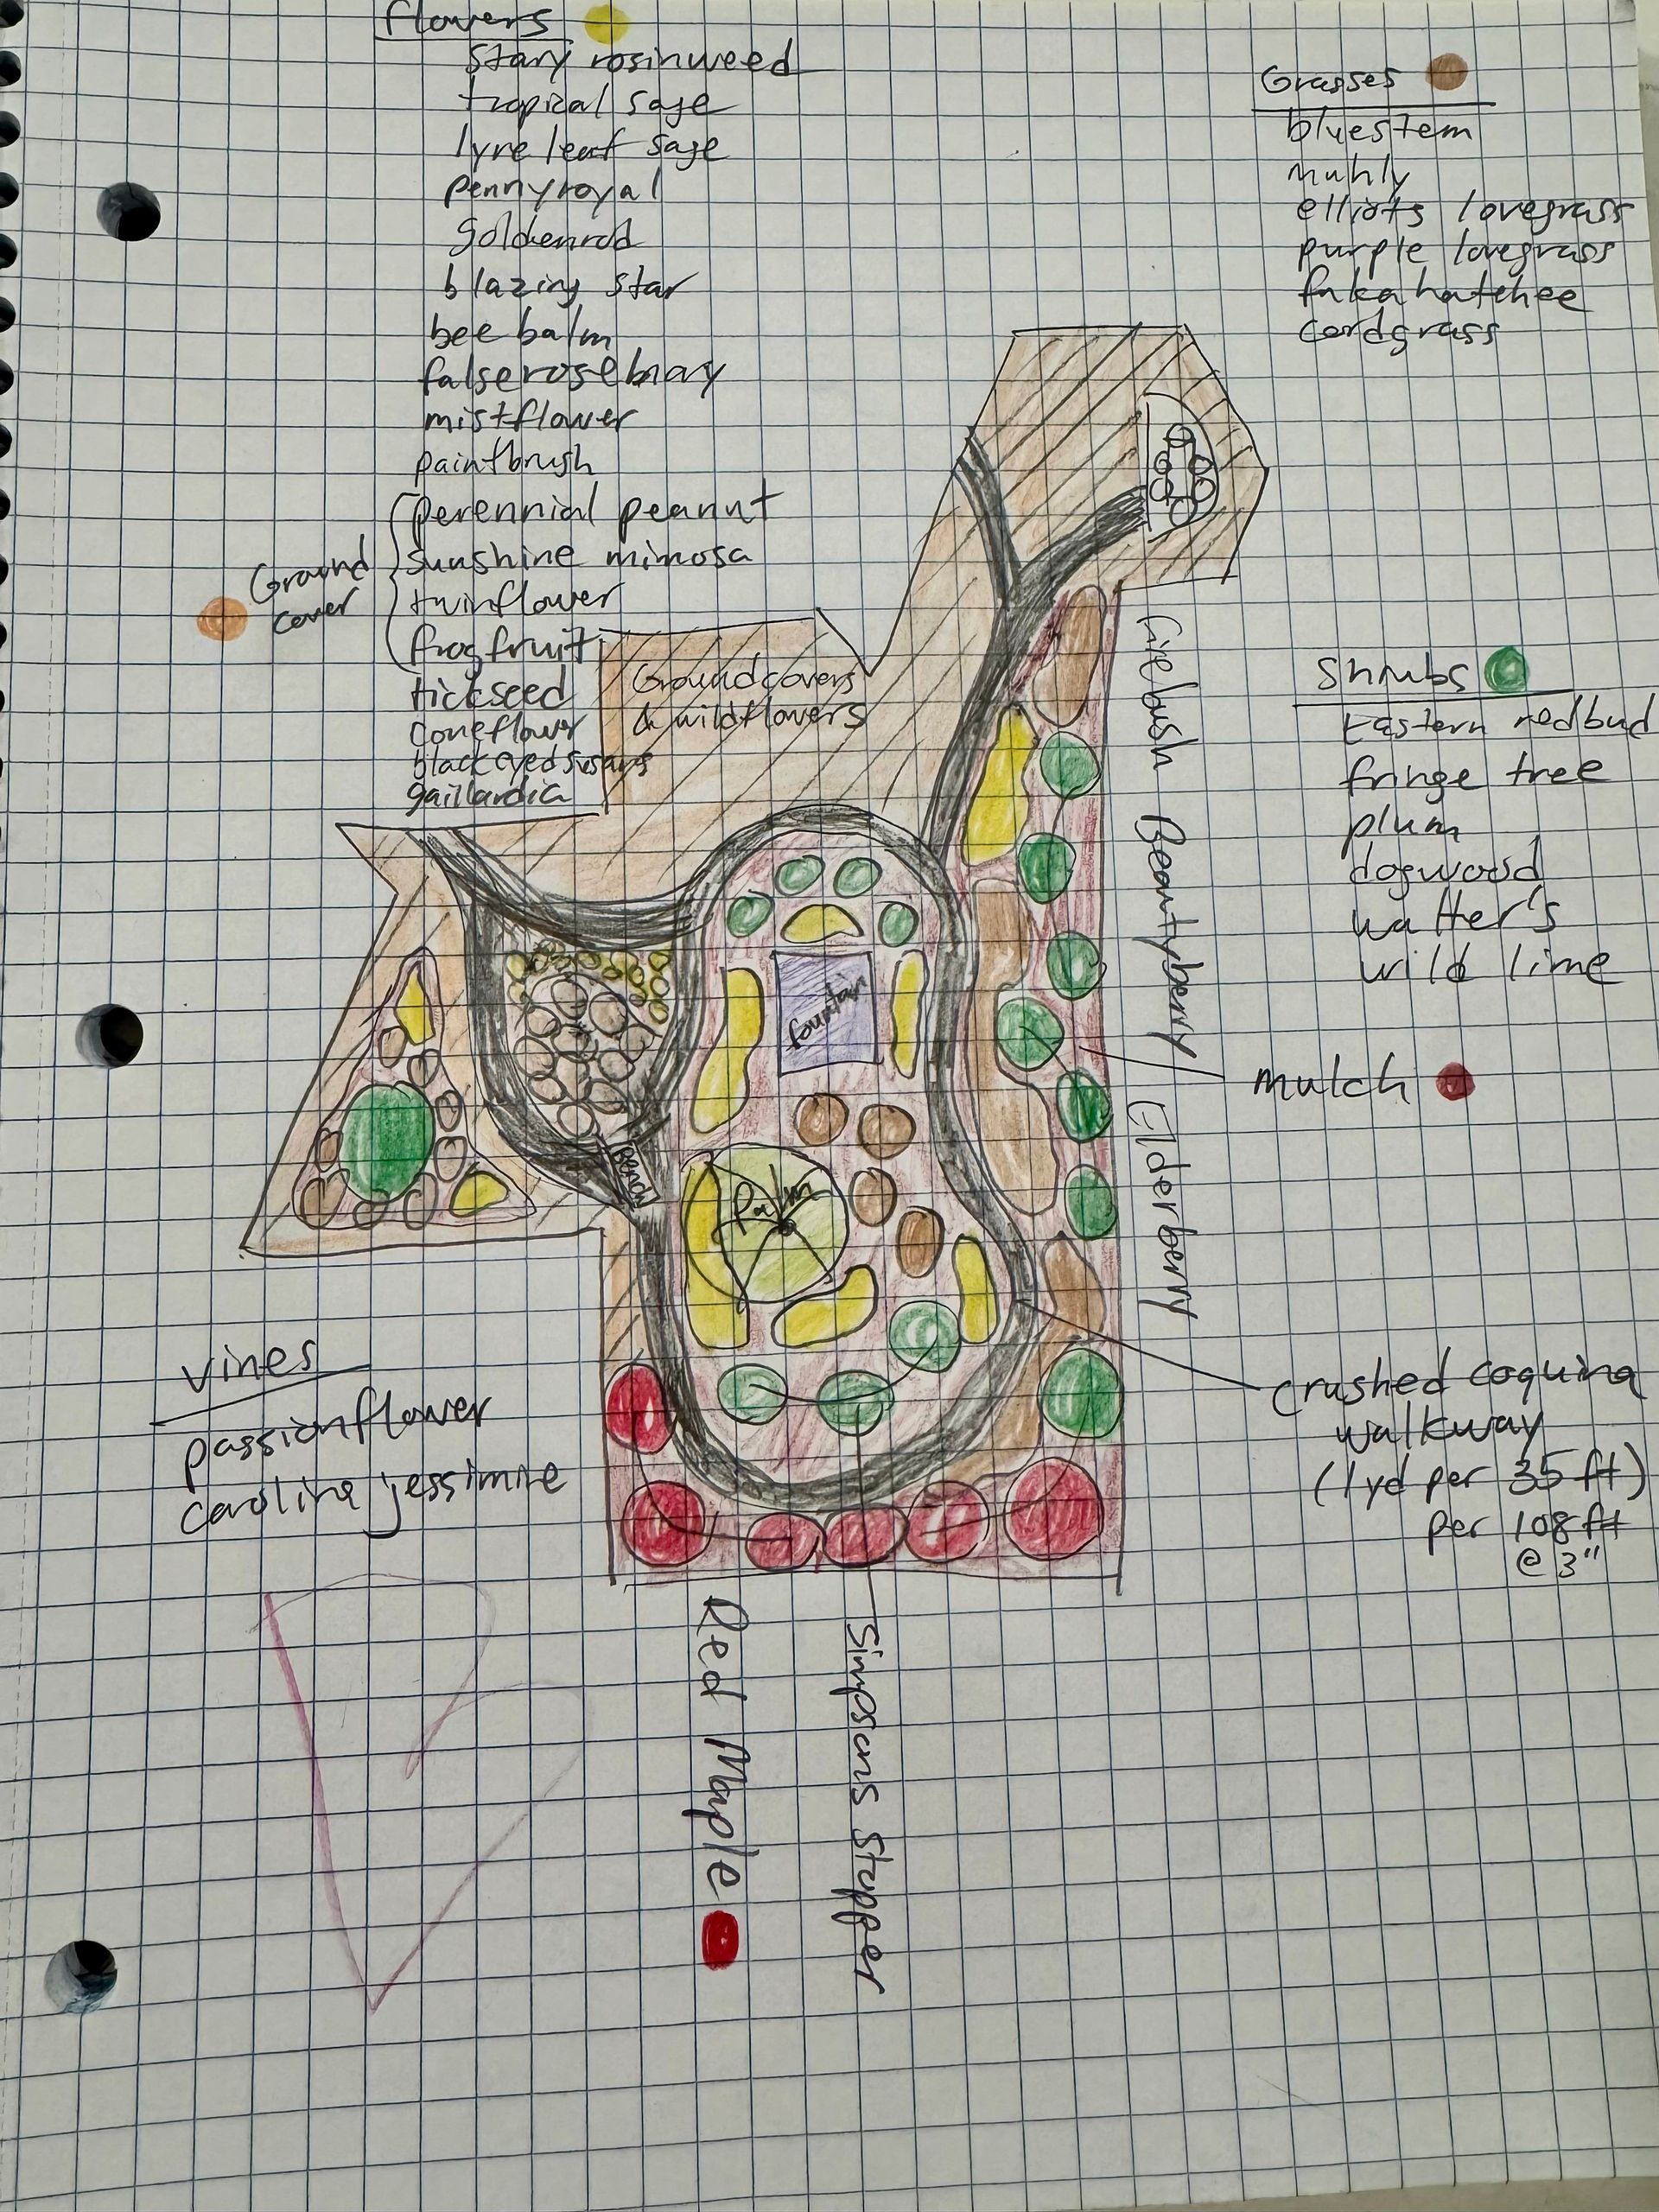 flowers
stary rosinweed
tropical sage
lyre leaf sage
pennyroyal
goldenrod
blazing star
bee balm
false rosemary
mistflower
paintbrush
perennial peanut
sunshine mimosa
twinflower
frogfruit
Ground
cover
tickseed
coneflower
blackeyed susans
gaillardia
Grasses
bluestem
muhly
elliots lovegrass
purple lovegrass
fakahatchee
cordgrass
Groundcovers
& wildflowers
Shrubs
Eastern redbud
fringe tree
plum
dogwood
walter's
wild lime
firebush Beautyberry Elderberry
mulch
fountain
Bench
Palm
vines
passionflower
carolina jessimine
crushed coquina
walkway
(1yd per 35 ft)
per 108 ft
@ 3"
Red Maple
Simpsons Stopper